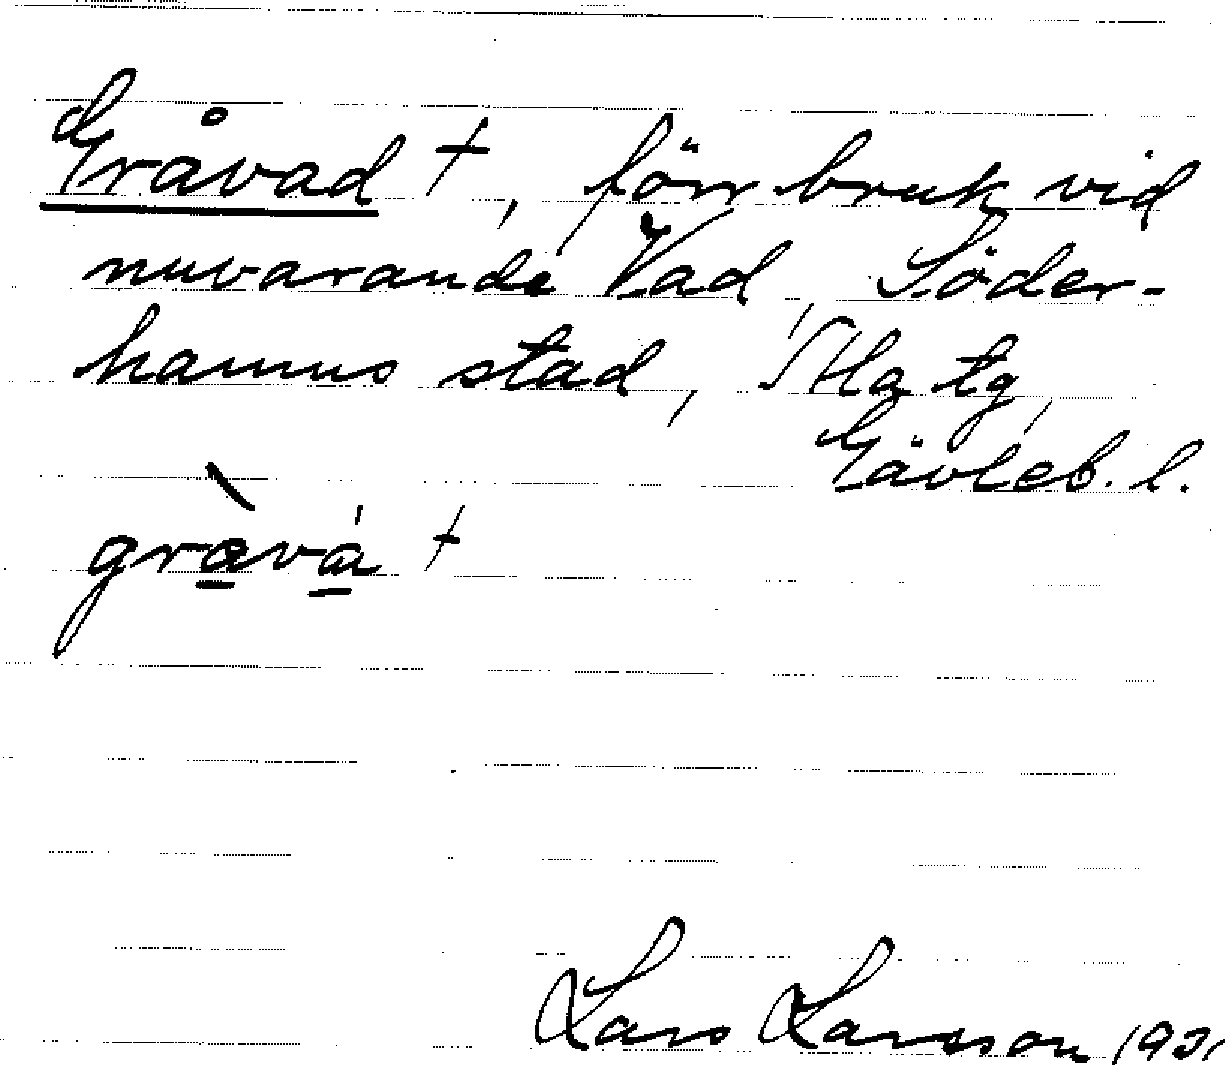 Gråvad †, förr bruk vid
nuvarande Vad, Söder-
hamns stad, Ala tg,
Gävleb. l.
gràvá †
Lars Larsson 1931